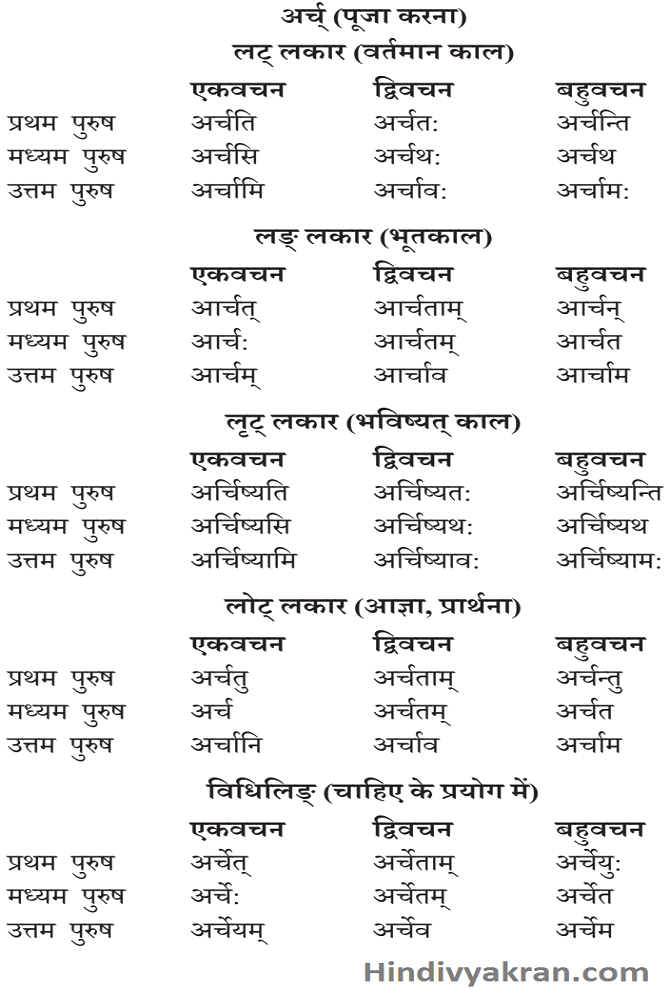 अर्च् (पूजा करना)
लट् लकार (वर्तमान काल)
एकवचन द्विवचन बहुवचन
प्रथम पुरुष अर्चति अर्चत: अर्चन्ति
मध्यम पुरुष अर्चसि अर्चथ: अर्चथ
उत्तम पुरुष अर्चामि अर्चाव: अर्चाम:
लङ् लकार (भूतकाल)
एकवचन द्विवचन बहुवचन
प्रथम पुरुष आर्चत् आर्चताम् आर्चन्
मध्यम पुरुष आर्च: आर्चतम् आर्चत
उत्तम पुरुष आर्चम् आर्चाव आर्चाम
लृट् लकार (भविष्यत् काल)
एकवचन द्विवचन बहुवचन
प्रथम पुरुष अर्चिष्यति अर्चिष्यत: अर्चिष्यन्ति
मध्यम पुरुष अर्चिष्यसि अर्चिष्यथ: अर्चिष्यथ
उत्तम पुरुष अर्चिष्यामि अर्चिष्याव: अर्चिष्याम:
लोट् लकार (आज्ञा, प्रार्थना)
एकवचन द्विवचन बहुवचन
प्रथम पुरुष अर्चतु अर्चताम् अर्चन्तु
मध्यम पुरुष अर्च अर्चतम् अर्चत
उत्तम पुरुष अर्चानि अर्चाव अर्चाम
विधिलिङ् (चाहिए के प्रयोग में)
एकवचन द्विवचन बहुवचन
प्रथम पुरुष अर्चेत् अर्चेताम् अर्चेयु:
मध्यम पुरुष अर्चे: अर्चेतम् अर्चेत
उत्तम पुरुष अर्चेयम् अर्चेव अर्चेम
Hindivyakran.com